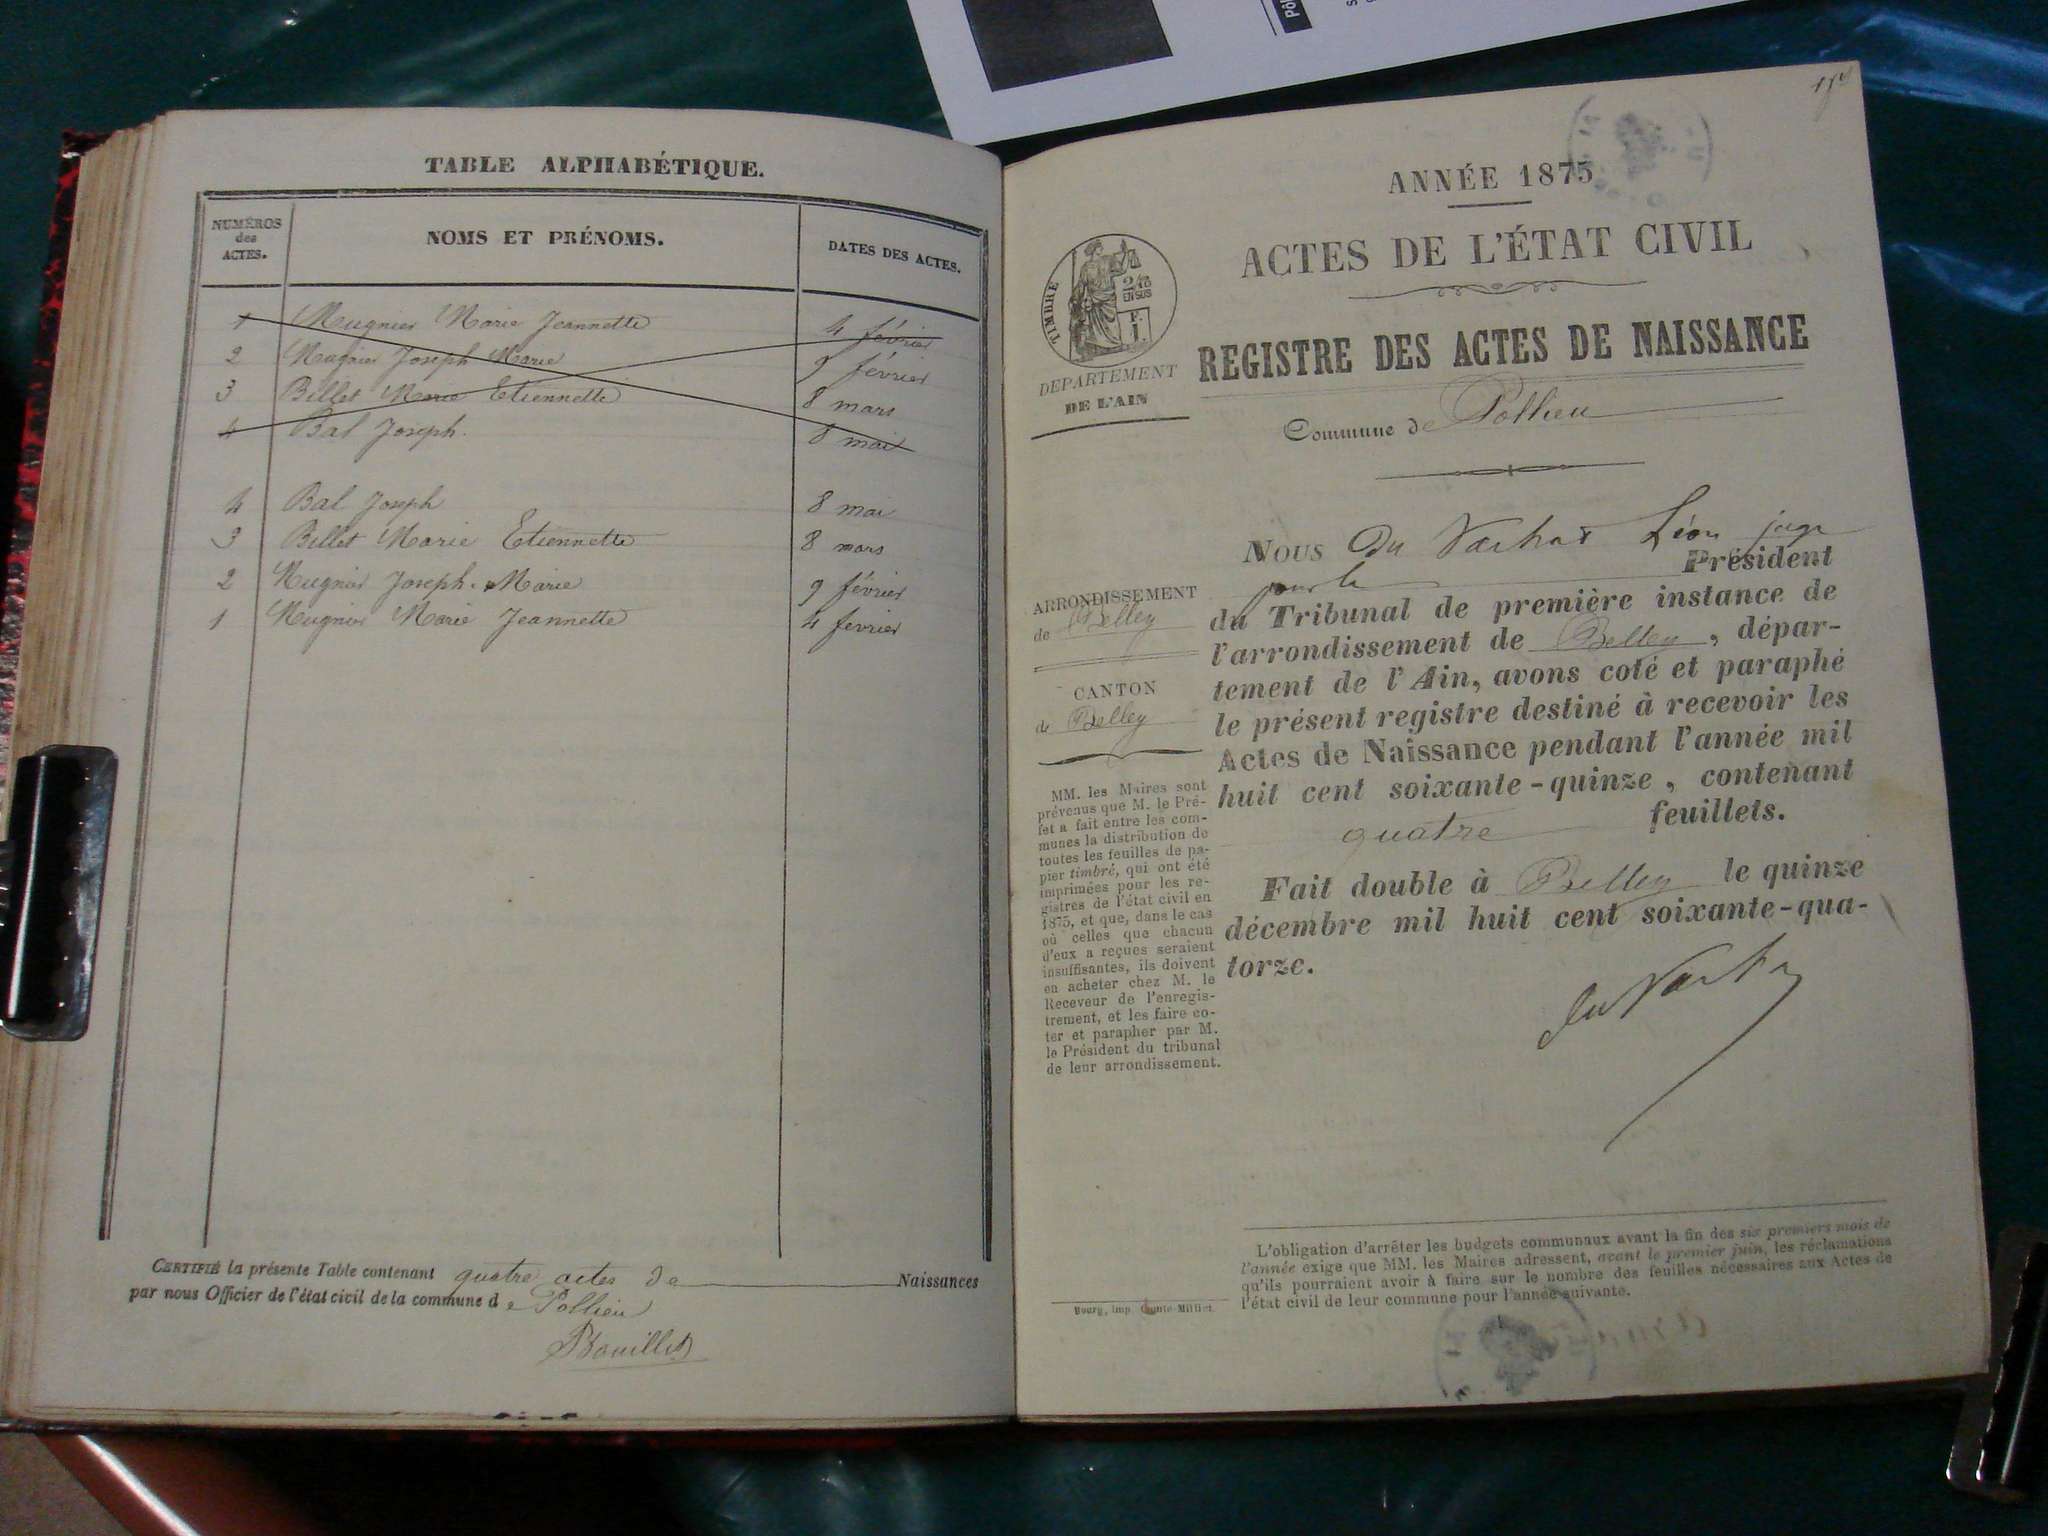 TABLE ALPHABÉTIQUE.
NUMÉROS des ACTES.
NOMS ET PRÉNOMS.
DATES DES ACTES.
1 Mugnier Marie Jeannette 4 février
2 Mugnier Joseph Marie 9 février
3 Billet Marie Etiennette 8 mars
4 Bal Joseph. 8 mai
4 Bal Joseph 8 mai
3 Billet Marie Etiennette 8 mars
2 Mugnier Joseph-Marie 9 février
1 Mugnier Marie Jeannette 4 février
CERTIFIÉ la présente Table contenant quatre actes de Naissances
par nous Officier de l'état civil de la commune de Pollieu
Bouillet
ANNÉE 1875
ACTES DE L'ÉTAT CIVIL
REGISTRE DES ACTES DE NAISSANCE
Commune de Pollieu
TIMBRE
EN SUS
DÉPARTEMENT
DE L'AIN
ARRONDISSEMENT
de Belley
CANTON
de Belley
MM. les Maires sont
prévenus que M. le Pré-
fet a fait entre les com-
munes la distribution de
toutes les feuilles de pa-
pier timbré, qui ont été
imprimées pour les re-
gistres de l'état civil en
1875, et que, dans le cas
où celles que chacun
d'eux a reçues seraient
insuffisantes, ils doivent
en acheter chez M. le
Receveur de l'enregis-
trement, et les faire co-
ter et parapher par M.
le Président du tribunal
de leur arrondissement.
Nous Du Léon juge
pour le Président
du Tribunal de première instance de
l'arrondissement de Belley, dépar-
tement de l'Ain, avons coté et paraphé
le présent registre destiné à recevoir les
Actes de Naissance pendant l'année mil
huit cent soixante-quinze, contenant
quatre feuillets.
Fait double à Belley le quinze
décembre mil huit cent soixante-qua-
torze.
L'obligation d'arrêter les budgets communaux avant la fin des six premiers mois de
l'année exige que MM. les Maires adressent, avant le premier juin, les réclamations
qu'ils pourraient avoir à faire sur le nombre des feuilles nécessaires aux Actes de
l'état civil de leur commune pour l'année suivante.
Bourg, imp.